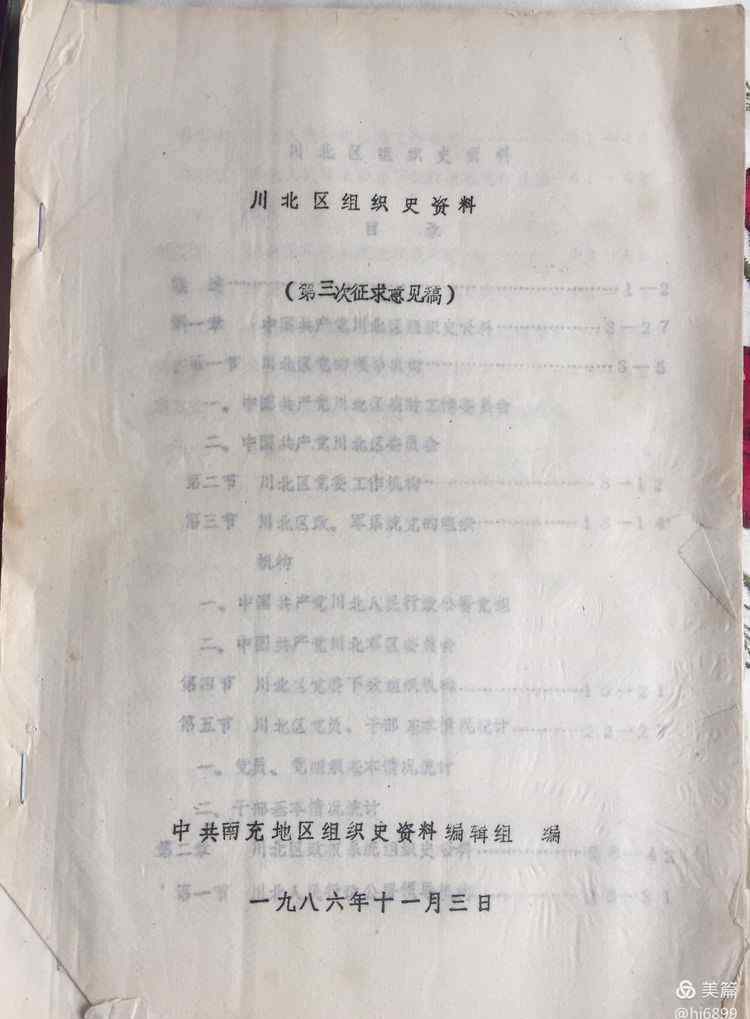 川北区组织史资料
川北区组织史资料
目 录
1—2
（第三次征求意见稿）
第一章 中国共产党川北区组织史资料……………3—27
第一节 川北区党的领导机构……………3—5
一、中国共产党川北区临时工作委员会
二、中国共产党川北区委员会
第二节 川北区党委工作机构……………—12
第三节 川北区政、军系统党的组织……………13—14
机构
一、中国共产党川北人民行政公署党组
二、中国共产党川北军区委员会
第四节 川北区党委下级组织机构……………15—21
第五节 川北区党员、干部基本情况统计……………22—27
一、党员、党组织基本情况统计
二、干部基本情况统计
中共南充地区组织史资料编辑组 编
第二章 川北区政权系统组织史资料……………—42
第一节 川北人民行政公署……………—31
一九八六年十一月三日
美篇
@hj6899